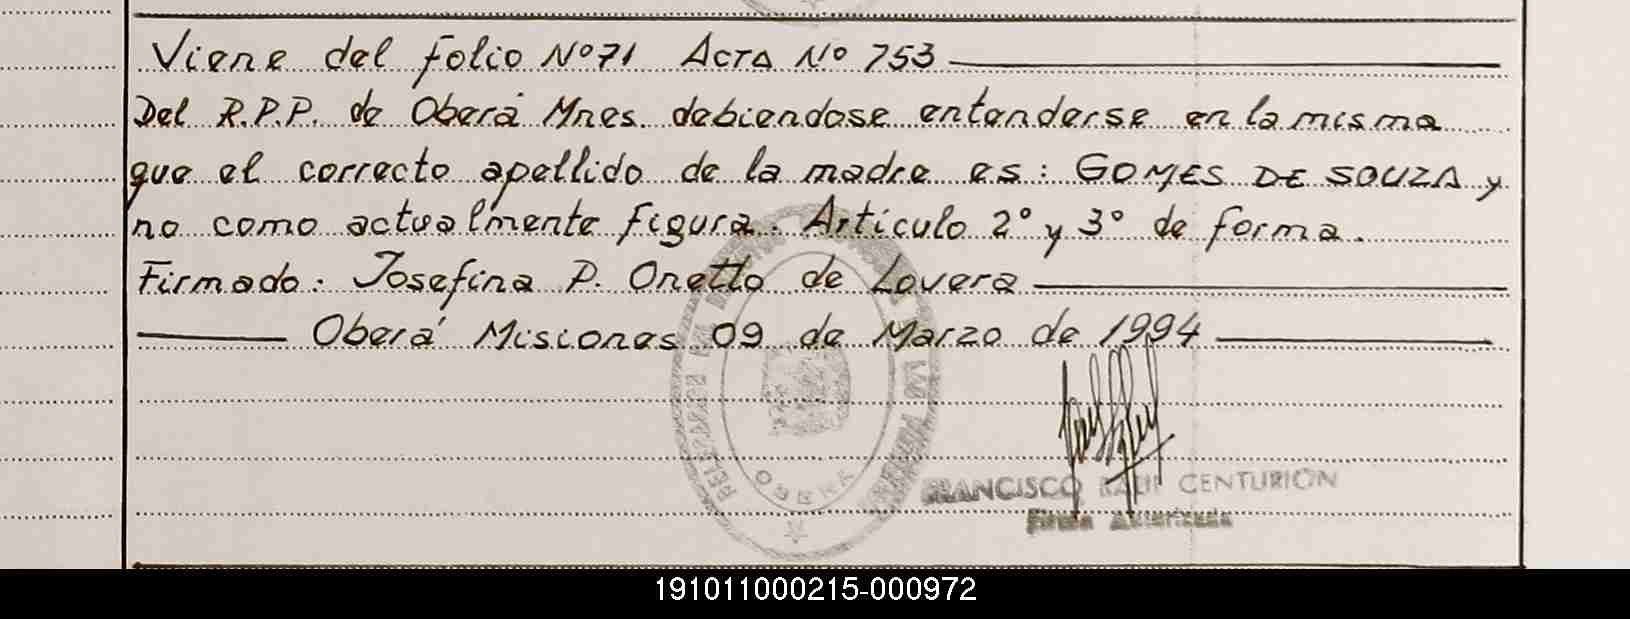 Viene del folio Nº 71 Acta Nº 753
Del R.P.P. de Oberá Mnes. debiendose entenderse en la misma
que el correcto apellido de la madre es: GOMES DE SOUZA y
no como actualmente figura. Artículo 2° y 3° de forma.
Firmado: Josefina P. Onetto de Lovera
Oberá Misiones 09 de Marzo de 1994
FRANCISCO RAUL CENTURION
Firma Autorizada
OBERA
191011000215-000972